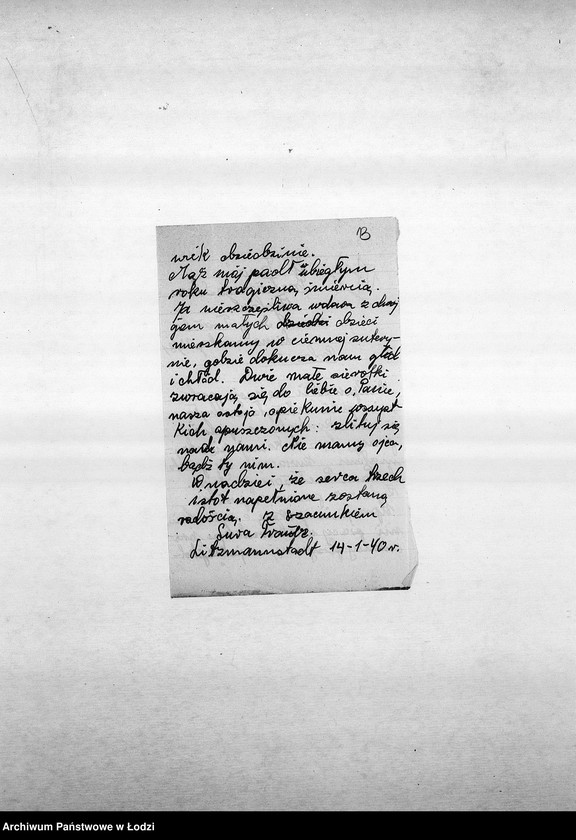 13
wik dziedzinie.
Mąż mój padł ubiegłym
roku tragiczną śmiercią.
Ja nieszczęśliwa wdowa z dwoj
giem małych dziatki dzieci
mieszkamy w ciemnej sutery-
nie, gdzie dokucza nam głód
i chłód. Dwie małe sierotki
zwracają się do Ciebie o, Panie,
nasza ostojo, opiekunie wszyst
kich opuszczonych: zlituj się
nad nami. Nie mamy ojca,
bądź ty nim.
W nadziei, że serca trzech
istot napełnione zostaną
radością. z szacunkiem
Sura
Litzmannstadt 14-1-40 r.
Archiwum Państwowe w Łodzi